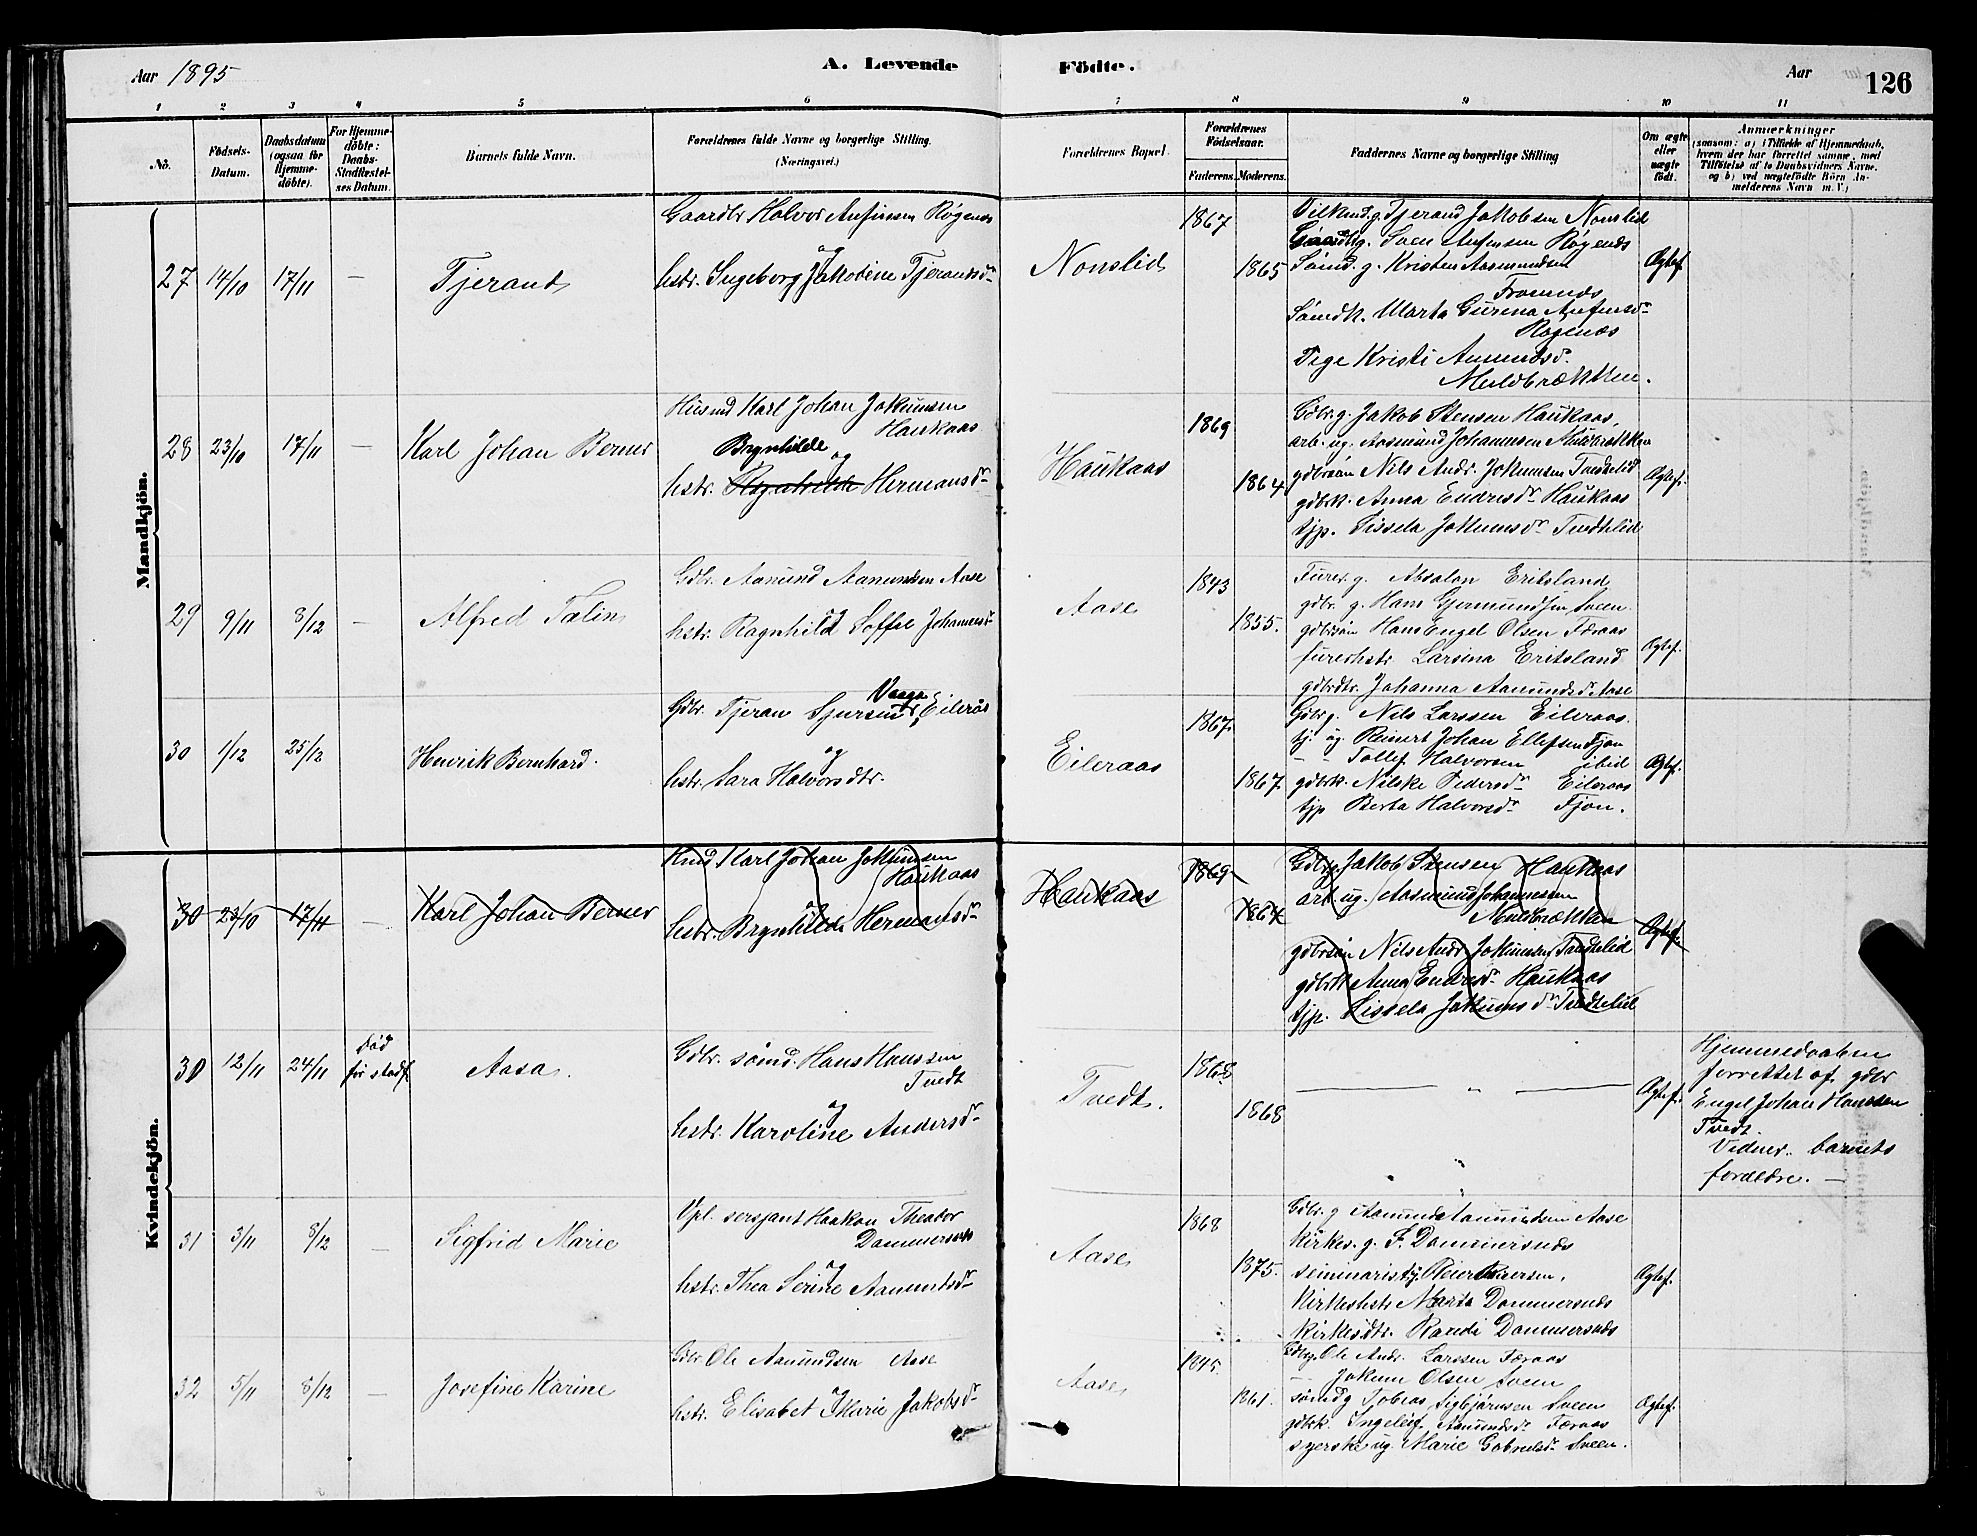 Aar 1895
A. Levende
Födte.
Aar
126
1 2 3 4 5 6 7 8 9 10 11
No.
Födsels-Datum.
Daabsdatum (ogsaa for Hjemmedöbte).
For Hjemmedöbte: Daabs-Stadfæstelses Datum.
Barnets fulde Navn.
Forældrenes fulde Navne og borgerlige Stilling. (Næringsvei.)
Forældrenes Bopæl.
Forældrenes Födselsaar.
Faderens. Moderens.
Faddernes Navne og borgerlige Stilling
Om ægte eller uægte födt.
Anmærkninger
(saasom: a) i Tilfælde af Hjemmedaab, hvem der har forrettet samme, med Tilföielse af to Daabsvidners Navne, og b) ved uægtefödte Börn Anmelderens Navn m. V.)
Mandkjön.
27 14/10 17/11 — Tjerand
Gaardbr Halvor Anfinsen Røgenes
og
hstr. Ingeborg Jakobine Tjerandsdr
Nonslid
1867
1865
g. Tjerand Jakobsen Nonslid
g. Sven Anfinsen Røgenes
Sömd. g. Kristen Aasmundsen
Marta Gurina Anfinsdr
Røgenæs
Pige Kristi Amundsd.
Mulebrækken.
Ægtef.
28 23/10 17/11 — Karl Johan Berner
Husmd Karl Johan Jokumsen
Haukaas
Brynhilde
og
hstr. Ragnhilde Hermansdr
Haukaas
1869
1864
Gdbr. g. Jakob Stensen Haukaas,
arb. ug. Aasmund Johannesen Mulebrækken
gdbrsön Nils Andr. Jokumsen Tvedtelid
gdbrk. Anna Endresdr Haukaas
tjp. Sissela Jokumsdr Tvedtelid
Ægtef.
29 9/11 8/12 — Alfred Talin
Gdbr. Aanund Aanundsen Aase
og
hstr. Ragnhild Soffie Johannesdr
Aase
1843
1855.
Furer g. Absalon Eritsland
gdbr. g. Hans Gjermundsen Sveen
gdbrsön Hans Engel Olsen Færaas
furerhstr Larsina Eritsland
gdbrdtr. Johanna Aanundsdr Aase
Ægtef.
30 1/12 25/12 Henrik Bernhard.
Vaage
Gdbr. Tjeran Sjursen Eileraas
og
hstr. Sara Halvorsdtr.
Eileraas
1867.
1867.
Gdbr g. Nils Larssen Eileraas.
tj. ug. Reinert Johan Ellefsen Fjon
- - Tollef Halvorsen ibid
gdbrk. Nilske Pedersdr Eileraas
tjp Berta Halvorsdr Fjon.
Ægtef.
Kvindekjön.
30 23/10 17/11 — Karl Johan Berner
Hmd Karl Johan Jokumsen
Haukaas
hstr. Brynhilde Hermansdr
Haukaas
1869
1864
Gdbr g. Jakob Stensen Haukaas
arb ug. Aasmund Johannesen
Mulebrækken
gdbrsön Nils Andr Jokumsen Tvedtelid
gdbrk Anna Endresdr Haukaas
tjp. Sissela Jokumsdr Tvedtelid
Ægtef.
30 12/11 24/11 Död för stadf. Aasa.
Gdbr. sömd. Hans Hanssen
Tvedt
og
hstr. Karoline Andersdr
Tvedt.
1868
1868
— " —
Ægtef.
Hjemmedaaben
forrettet af gdbr
Engel Johan Hanssen
Tvedt.
Vidner. barnets
foreldre. —
31 3/11 8/12 — Sigfrid Marie
Vpl. sersjant Haakon Theodor
Dommersnes
og
hstr. Thea Serine Aanundsdr
Aase
1868
1875.
Gdbr. g Aanund Aanundsen Aase
Kirkes. g. F. Dommersnæs
seminarist
Kirkeshstr Marta Dommersnæs
Kirkesdtr. Randi Dommersnæs
Ægtef.
32 5/11 8/12 — Josefine Karine
Gdbr Ole Aanundsen Aase
og
hstr. Elisabet Marie Jakobsdr
Aase
1845.
1861.
Gdbr g. Ole Andr. Larssen Færaas
- - Jokum Olsen Sveen
sömd g Tobias Sigbjörnsen Sveen
gdbrk. Ingeleif Aanundsdr Færaas
syerske ug. Marie Gabrielsdr Sveen.
Ægtef.